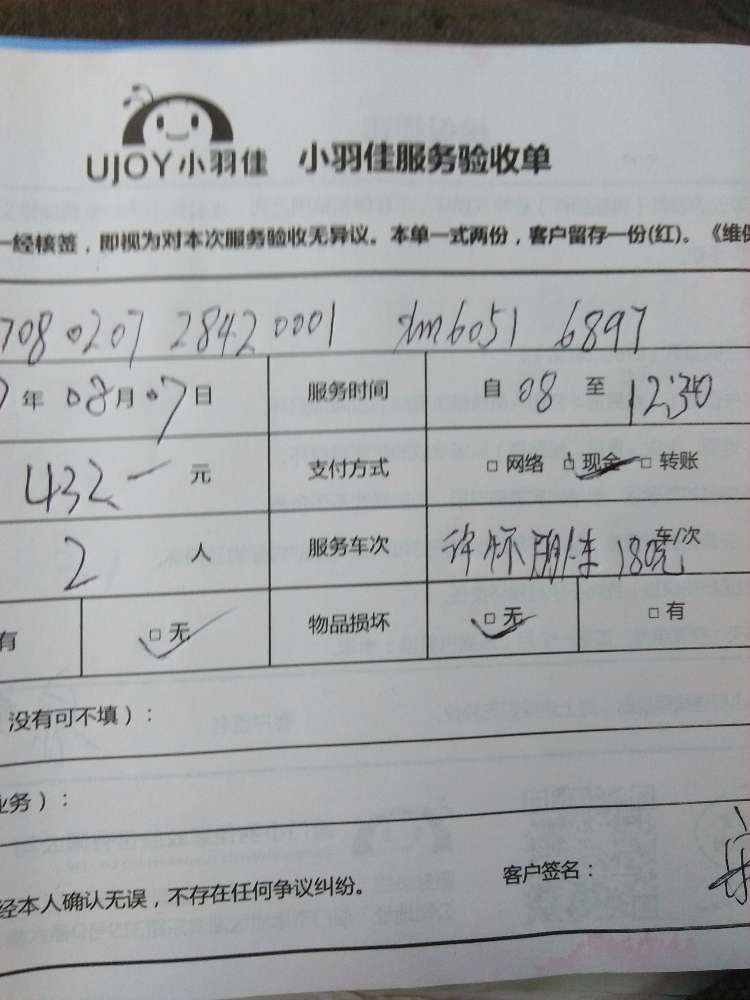 UJOY小羽佳 小羽佳服务验收单
一经核签，即视为对本次服务验收无异议。本单一式两份，客户留存一份(红)。《维保
708 0207 2842 0001 xm6051 6897
年 08月07日 服务时间 自 08 至 12:30
432.一 元 支付方式 □ 网络 □ 现金 □ 转账
2 人 服务车次 许怀 180元 车/次
有 □ 无 物品损坏 □ 无 □ 有
没有可不填）：
业务）：
经本人确认无误，不存在任何争议纠纷。 客户签名：